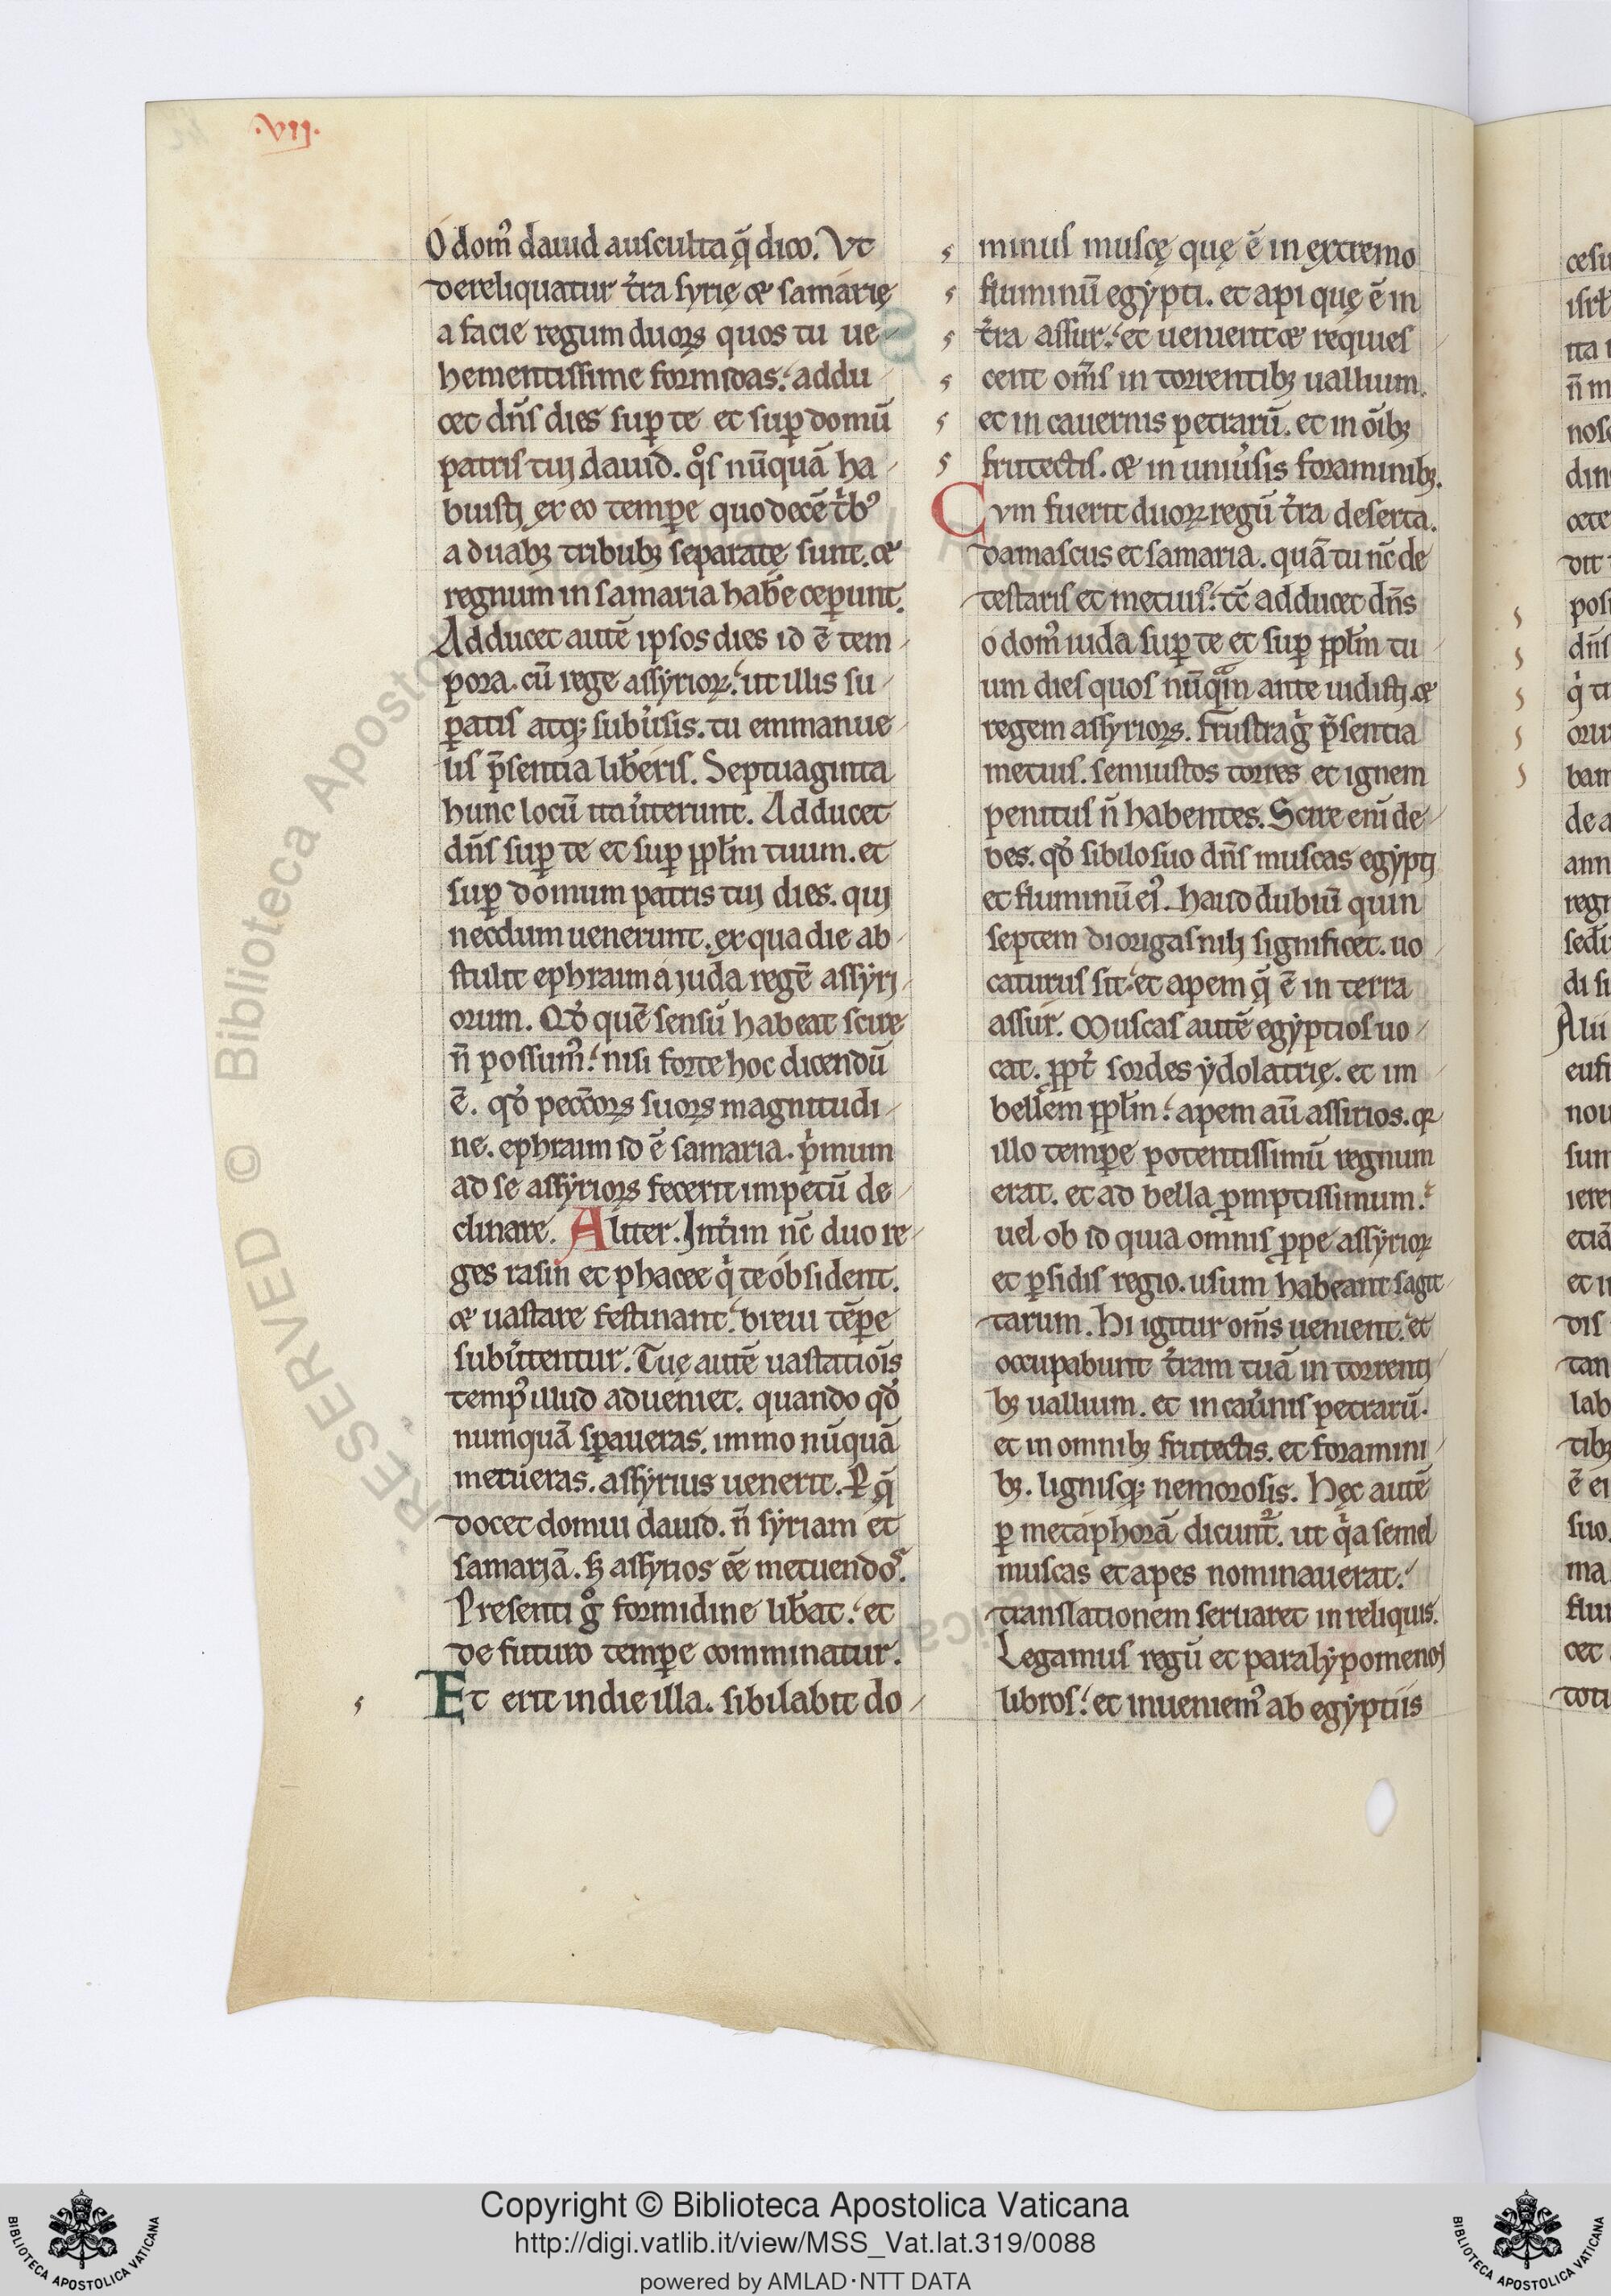 .VIJ.
O dom᾽ dauid ausculta q̄ dico. Vt
dereliquatur t̓ra syrię et samarię
a facie regum duoꝝ quos tu ue
hementissime formidas. addu
cet dn̄s dies suꝑ te et suꝑ domū
patris tuj dauid. qͦs nūquā ha
buistj ex eo temꝑe quo decē t̓bꝫ
a duabꝫ tribubꝫ separatę sunt. et
regnum in samaria hab̄e ceꝑunt.
Adducet autē ipsos dies id ē tem
pora. cū rege assẏrioꝝ. ut illis su
ꝑatis atqꝫ subu̓sis. tu emmanue
lis p̄sentia lib̄eris. Septuaginta
hunc locū ita u̓terunt. Adducet
dn̄s suꝑ te et suꝑ ppl̄m tuum. et
suꝑ domum patris tuj dies. quj
necdum uenerunt. ex qua die ab
stulit ephraim a juda regē assẏrj
orum. Qd̓ quē sensū habeat scire
n̄ possum᾽. nisi forte hoc dicendū
ē. qd̓ pecc̄oꝝ suoꝝ magnitudi
ne. ephraim id ē samaria. p̓mum
ad se assẏrioꝝ fecerit impetū de
clinare. Aliter. Int̓im nc̄ duo re
ges rasin et phacee q̓ te obsident.
et uastare festinant. breui tēꝑe
subu̓tentur. Tuę autē uastatiōis
temp᾽ illud adueniet. quando qd̓
numquā sꝑaueras. immo nūquā
metueras. assẏrius uenerit. P q̄
docet domui dauid. n̄ sẏriam et
samarjā. ꝫ assyrios eē metuendos.
Presenti gͦ formidine lib̄at. et
de futuro temꝑe comminatur.
Et erit in die illa. sibilabit do
minus muscę quę ē in extremo
fluminū egẏpti. et api quę ē in
t̓ra assur. et uenient et requies
cent om̄s in torrentibꝫ uallium.
et in cauernis petrarū. et in ōibꝫ
frutectis. et in uniu̓sis foraminibꝫ.
Cvm fuerit duoꝝ regū t̓ra deserta.
damascus et samaria. quā tu nc̄ de
testaris et metuis. tc̄ adducet dn̄s
o dom᾽ iuda suꝑ te et suꝑ ppl̄m tu
um dies quos nūqͣm ante uidistj. et
regem assyrioꝝ. Frustra g̓ p̄sentia
metuis. semiustos torres et ignem
penitus n̄ habentes. Scire enī de
bes. qd̓ sibilo suo dn̄s muscas egẏptj
et fluminū ei᾽. haud dubiū quin
septem diorigas nilj significet. uo
caturus sit. et apem q̄ ē in terra
assur. Muscas autē egẏptios uo
cat. ꝓpt̓ sordes ẏdolatrię. et im
bellem ppl̄m. apem aū assirios. qꝛ
illo temꝑe potentissimū regnum
erat. et ad bella ꝓmptissimum.
uel ob id quia omnis ꝓpe assẏrioꝝ
et ꝑsidis regio. usum habeant sagit
tarum. Hi igitur om̄s uenient. et
occupabunt t̓ram tuā in torrentj
bꝫ uallium. et in cau̓nis petrarū.
et in omnibꝫ frutectis. et foramini
bꝫ. lignisqꝫ nemorosis. Hęc autē
ꝑ metaphorā dicunt᷑. ut q̓a semel
muscas et apes nominauerat.
translationem seruaret in reliquis.
Legamus regū et paralẏpomenoj
libros. et inueniem᾽ ab egẏptiis
Copyright © Biblioteca Apostolica Vaticana
http://digi.vatlib.it/view/MSS_Vat.lat.319/0088
powered by AMLAD·NTT DATA